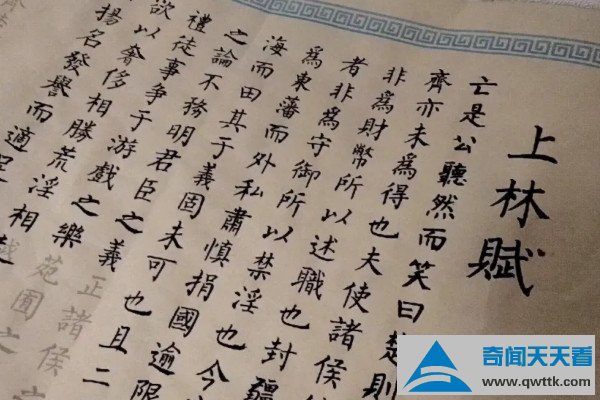 上林賦
亡是公聽然而笑曰楚則
齊亦未為得也夫使諸侯
非為財幣所以述職也封疆
者非為守御所以禁淫也今
為東藩而外私肅慎捐國逾限
海而田其于義固未可也且二
之論不務明君臣之義正諸侯
禮徒事爭于游戲之樂苑囿之
欲以奢侈相勝荒淫相越
揚名發譽而適足
奇闻天天看
www.qwttk.com